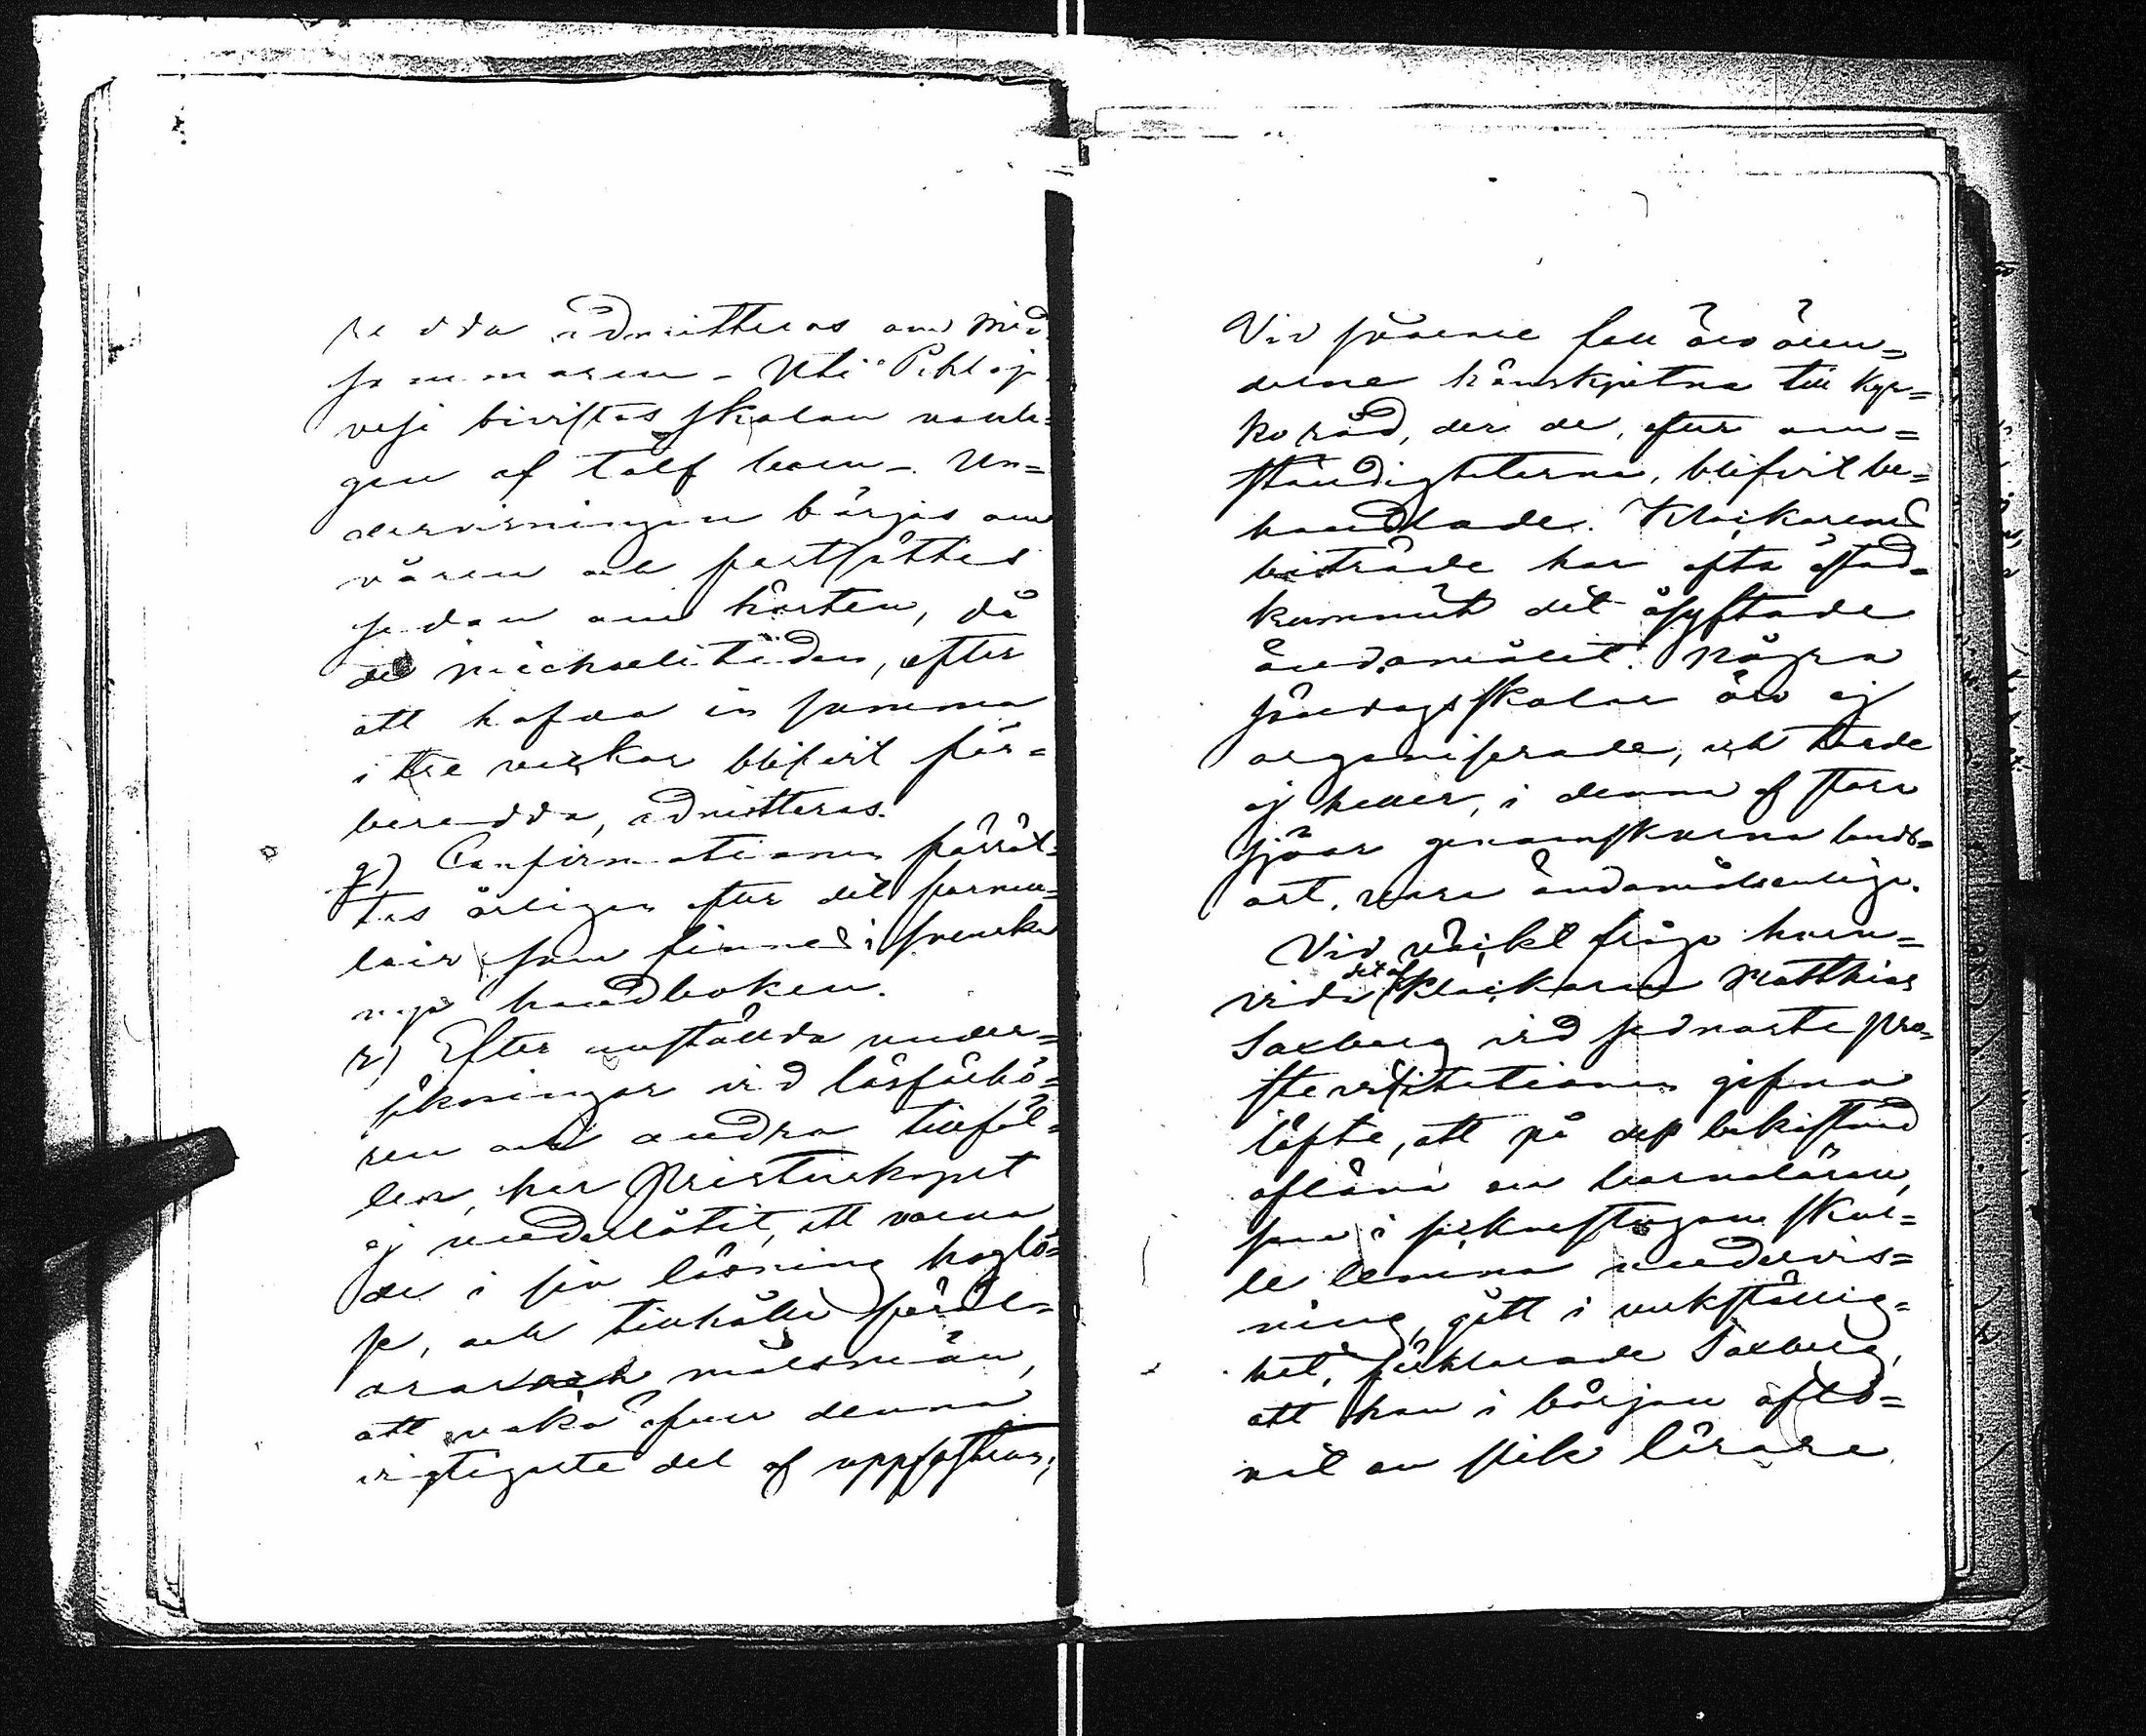 redda admitteras om mid-
sommaren - Uti Pihlaja-
vesi bivistas skolan vanli-
gen af tolf barn - Un=
dervisningen börjas om
våren och fortsättes
sedan om hösten, då
de Michaelitiden, efter
att hafva in summa
i tre veckor blifvit för=
beredda, admitteras.
q) Confirmationen förrät-
tas årligen efter det formu-
lair som finnes i svenska
nya handboken.
r) Efter anställda under=
sökningar vid läsförhö=
ren och andra tillfäl=
len, har Presterskapet
ej underlåtit, att varna
de i sin läsning hoglö=
se, och tillhålla föräl=
drar och målsmän,
att vaka öfver denna
vigtigaste del af uppfostran;
Vid svårare fall äro ären=
derne hänskjutna till Kyr=
koråd, der de, efter om=
ständigheterna, blifvit be=
handlade. Klockarens
biträde har ofta åstad=
kommit det åsyftade
ändamålet. Några
söndagsskolor äro ej
organiserade, och torde
ej heller, i denna af stora
sjöar genomskurna lands=
ort, vara ändamålsenliga.
Vid väckt fråga huru=
vida det af Klockaren Matthias
Saxberg vid sednaste pro=
stevisitationen gifna
löfte, att på dess bekostnad
aflöna en barnalärare,
som i sockenstugan skul=
le lemna undervis=
ning, gått i verkställig=
het, förklarade Saxberg,
att han i början aflö=
nat en slik lärare